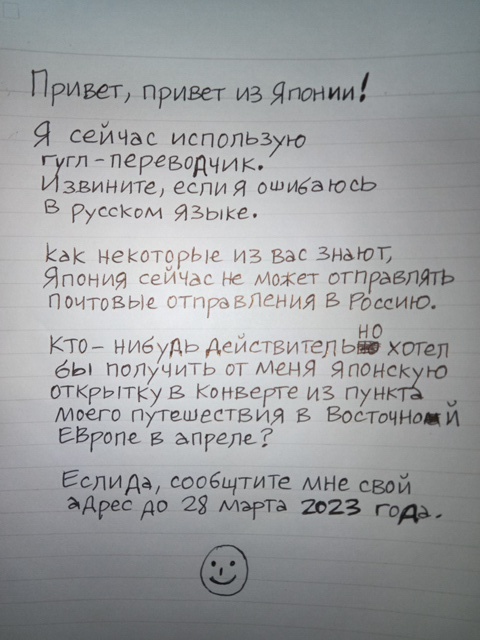 Привет, привет из Японии!
Я сейчас использую
гугл-переводчик.
Извините, если я ошибаюсь
в русском языке.
Как некоторые из вас знают,
Япония сейчас не может отправлять
почтовые отправления в Россию.
Кто-нибудь действительно хотел
бы получить от меня японскую
открытку в конверте из пункта
моего путешествия в Восточной
Европе в апреле?
Если да, сообщтите мне свой
адрес до 28 марта 2023 года.